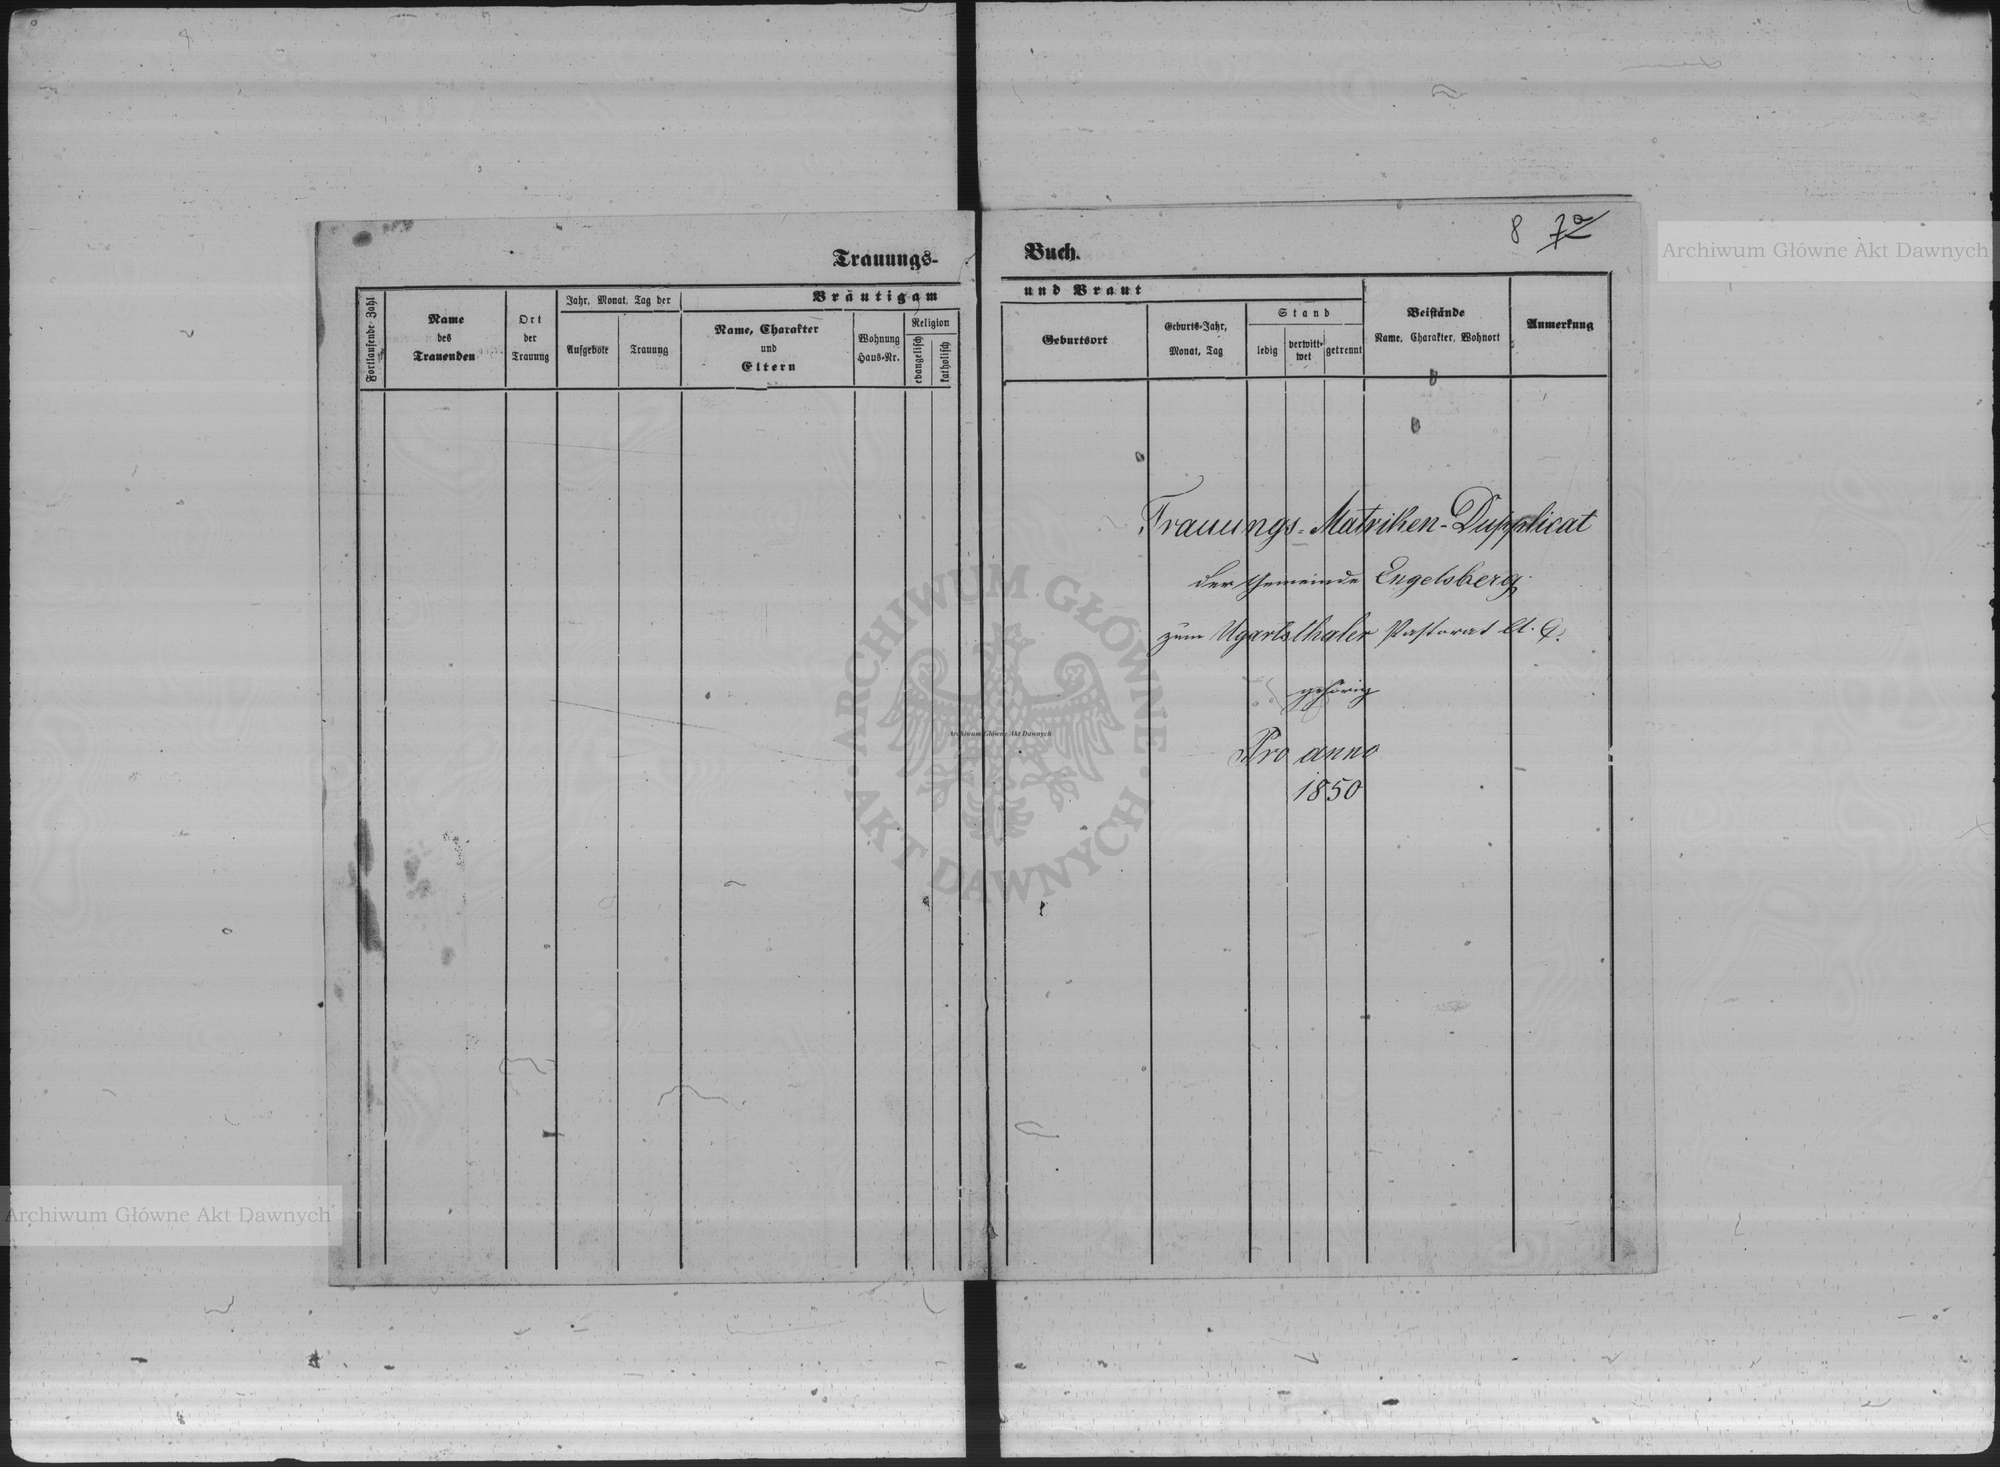 8 7a
Trauungs-
Buch.
Fortlaufende Zahl
Name
des
Trauenden
Ort
der
Trauung
Jahr, Monat, Tag der
Aufgebote
Trauung
Bräutigam
Name, Charakter
und
Eltern
Wohnung
Haus-Nr.
Religion
evangelisch
katholisch
und Braut
Geburtsort
Geburts-Jahr,
Monat, Tag
Stand
ledig
verwitt-
wet
getrennt
Beistände
Name, Charakter, Wohnort
Anmerkung
Trauungs-Matriken-Dupplicat
der Gemeinde Engelsberg
zum Ugartsthaler Pastorat A. C.
gehörig
Pro anno
1850
Archiwum Główne Akt Dawnych
ARCHIWUM GŁÓWNE
AKT DAWNYCH
Archiwum Główne Akt Dawnych
Archiwum Główne Akt Dawnych